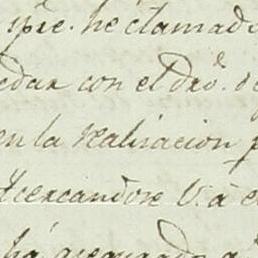 pre. he clamad
edar con el dro. d
en la realisacion p
Acercandose V. a e
ha asegurado a